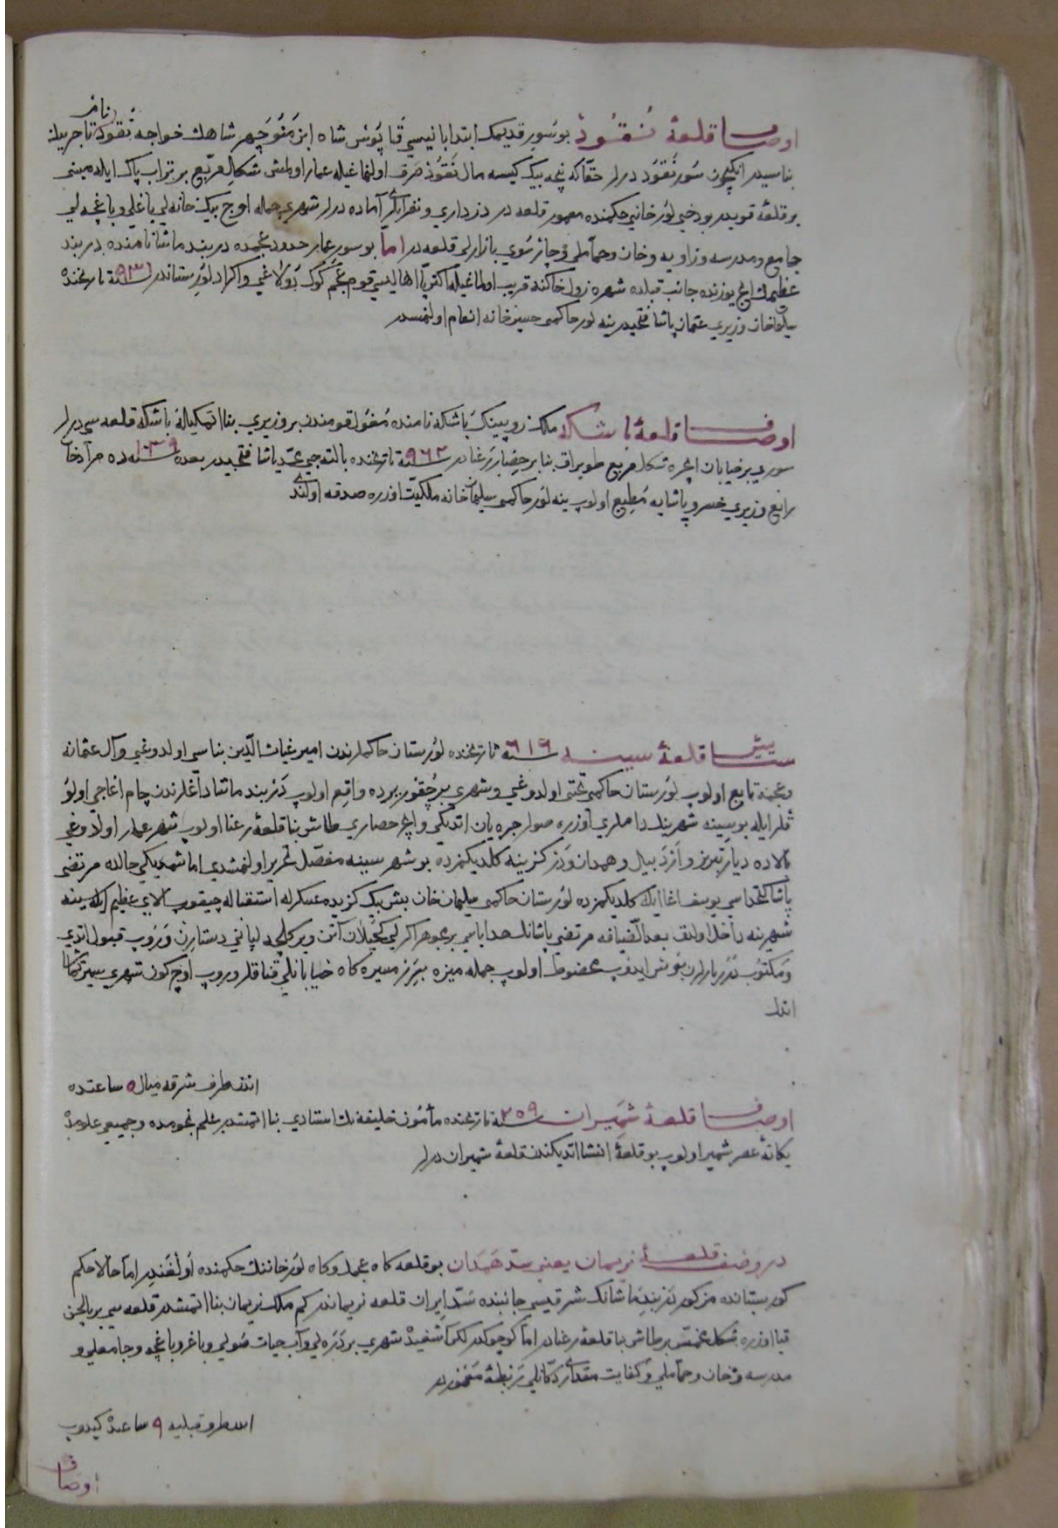 نام
اوصاف قلعۀ نُقُودْ بو سور قديمك ابتدا بانيسي قپا پُونس شاه ابن مَنُوَچهر شاهك خواجه نقود تاجرينك
بناسيدر انكيچون سُور نُقُود ديرلر حقّا كه نيچه بيك كيسه مال نُقُوذ صرف اولنماغيله عمار اولمش شكل مربّع بر تراب پاك ايله مبني
بر قلعۀ قويدر بو دخي لُور خاني حكمنده معمور قلعه در دزداري و نفراتلري آماده درلر شهري جمله اوچ بيك خانه لي باغلي و باغچه لي
جامع و مدرسه و زاويه و خان و حمّاملي و چارسُوي بازارلي قلعه در امّا بو سور عمار حدود عجمده دربند ماشانا منده دربند
عظيمك ايچ يوزنده جانب قبلده شهره زول خاكنه قريب اولماغيله اكثريّا اهاليسي قوم عجم كوك دولاغي و اكراد لُورستاندر سنه ٩٣١ تاريخنده
سليمان خان وزيري عثمان پاشا فتحيدر ينه لور حاكمي حسين خانه انعام اولنمشدر
اوصاف قلعۀ باشكه ملك زوپينك باشكه نامنده مُغول قومندن بر وزيري بنا اتمكيله باشكه قلعه سي ديرلر
سوري بر خيابان ايچره شكل مربع طوپراق بنا بر حِصار رعنادر سنه ٩٦٣ تاريخنده بالته جي محمّد پاشا فتحيدر بعده سنه ١٠٣٩ ده مراد خان
رابع وزيري خسرو پاشايه مُطيع اولوب ينه لُور حاكمي سليمان خانه ملكيّت اوزره صدقه اولندي
ستايش قلعۀ سينه سنه ٦١٩ تاريخنده لُورستان حاكملرندن امير غياث الدّين بناسي اولدوغي و آل عثمانه
و عجمه تابع اولوب لُورستان حاكمي تختي اولدوغي و شهري بر چقور يرده واقع اولوب دَربند ماشا داغلرندن چام اغاجي اولوُ
قلر ايله بو سينه شهرينك داملري اوزره صولر جريان اتديكي و ايچ حصاري طاش بنا قلعۀ رعنا اولوب شهر عمار اولدوغي
بالاده ديار تبريز و اَردَبيل و همدان و دركزينه كلديكمزده بو شهر سينه مفصّل تحرير اولنمشدي اما شمديكي حالده مرتضي
پاشا كتخداسي يوسف اغا ايله كلديكمزده لورستان حاكمي سليمان خان بش بيك كزيده عسكر له استقباله چيقوب الاي عظيم ايله سينه
شهرينه داخل اولنق بعد الضّيافه مرتضي پاشانك هداياسي بر مجوهر اكرلي كحيلان آتن ويركلچه لپاني دستارين ويروب قبول اتدي
و مكتوب دُرَر بارلرن بُوس ايدوب محضوظ اولوب جمله ميزه بيرر مسيره كاه خيابانلي قناقلر ويروب اوچ كون شهري سير تماشا
اتدك
اندن طرف شرقه ميال ٥ ساعتده
اوصاف قلعۀ شَميران سنه ٢٥٩ تاريخنده مأمُون خليفه نك استادي بنا اتمشدر علم نجومده و جميعي علومده
يكانۀ عصر شمير اولوب بو قلعۀ انشا اتديكندن قلعۀ شميران ديرلر
در وصف قلعۀ نريمان يعني سدّ هَمَدان بو قلعه كاه عجمك و كاه لُور خانننك حكمنده اولغندر امّا حالا حكم
كورستانده مزكور دَربندِ ماشانك شرقيسي جانبنده سدّ ايران قلعه نريماندر كم ملك نريمان بنا اتمشدر قلعه سي بر يالچين
قيا اوزره شكل مخمّس بر طاش بنا قلعۀ رعنادر امّا كوچوكدر لكن آشغيده شهري بر دَرَه لي و آب حيات صُولي و باغ و باغچه و جامعلي و
مدرسه و خان و حمّاملي و كفايت مقداري دكّانلي رنبطۀ معموردر
اندن طرف قبليه ٩ ساعتده كيدوب
اوصاف